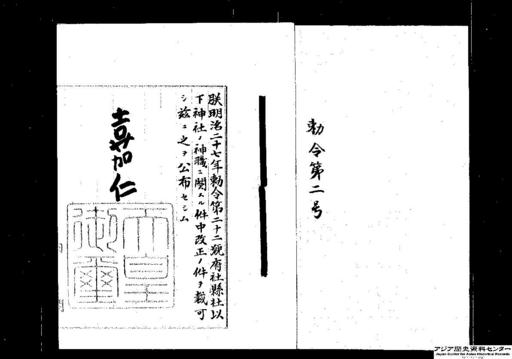 勅令第二号
朕明治二十七年勅令第二十二號府社縣社以
下神社ノ神職ニ関スル件中改正ノ件ヲ裁可
シ茲ニ之ヲ公布セシム
嘉仁
天皇
御璽
アジア歴史資料センター
Japan Center for Asian Historical Records